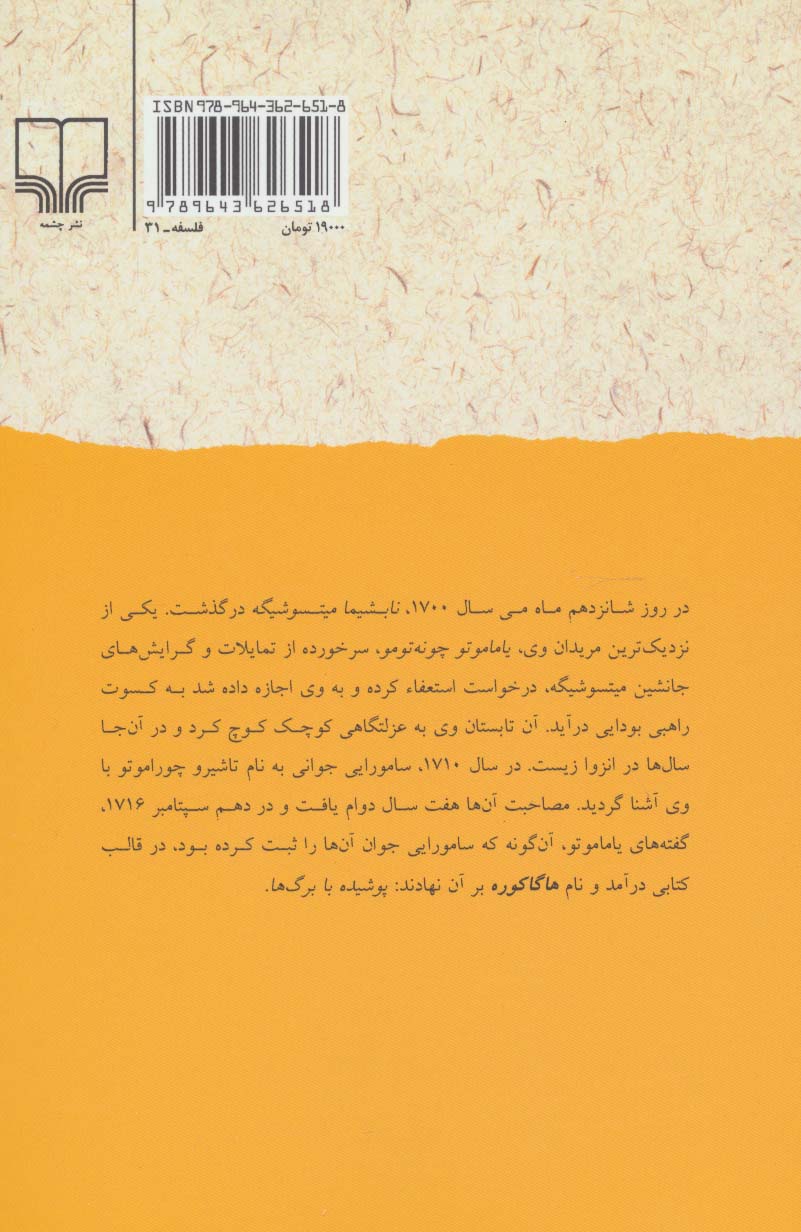 ISBN 978-964-362-651-8
9 789643 626518
نشر چشمه
فلسفه ـ ۳۱
۱۹۰۰۰ تومان
در روز شانزدهم ماه می سال ۱۷۰۰، نابشیما میتسوشیگه درگذشت. یکی از
نزدیک‌ترین مریدان وی، یاماموتو چونه‌تومو، سرخورده از تمایلات و گرایش‌های
جانشین میتسوشیگه، درخواست استعفاء کرده و به وی اجازه داده شد به کسوت
راهبی بودایی درآید. آن تابستان وی به عزلتگاهی کوچک کوچ کرد و در آن‌جا
سال‌ها در انزوا زیست. در سال ۱۷۱۰، سامورایی جوانی به نام تاشیرو چوراموتو با
وی آشنا گردید. مصاحبت آن‌ها هفت سال دوام یافت و در دهم سپتامبر ۱۷۱۶،
گفته‌های یاماموتو، آن‌گونه که سامورایی جوان آن‌ها را ثبت کرده بود، در قالب
کتابی درآمد و نام هاگاکوره بر آن نهادند: پوشیده با برگ‌ها.